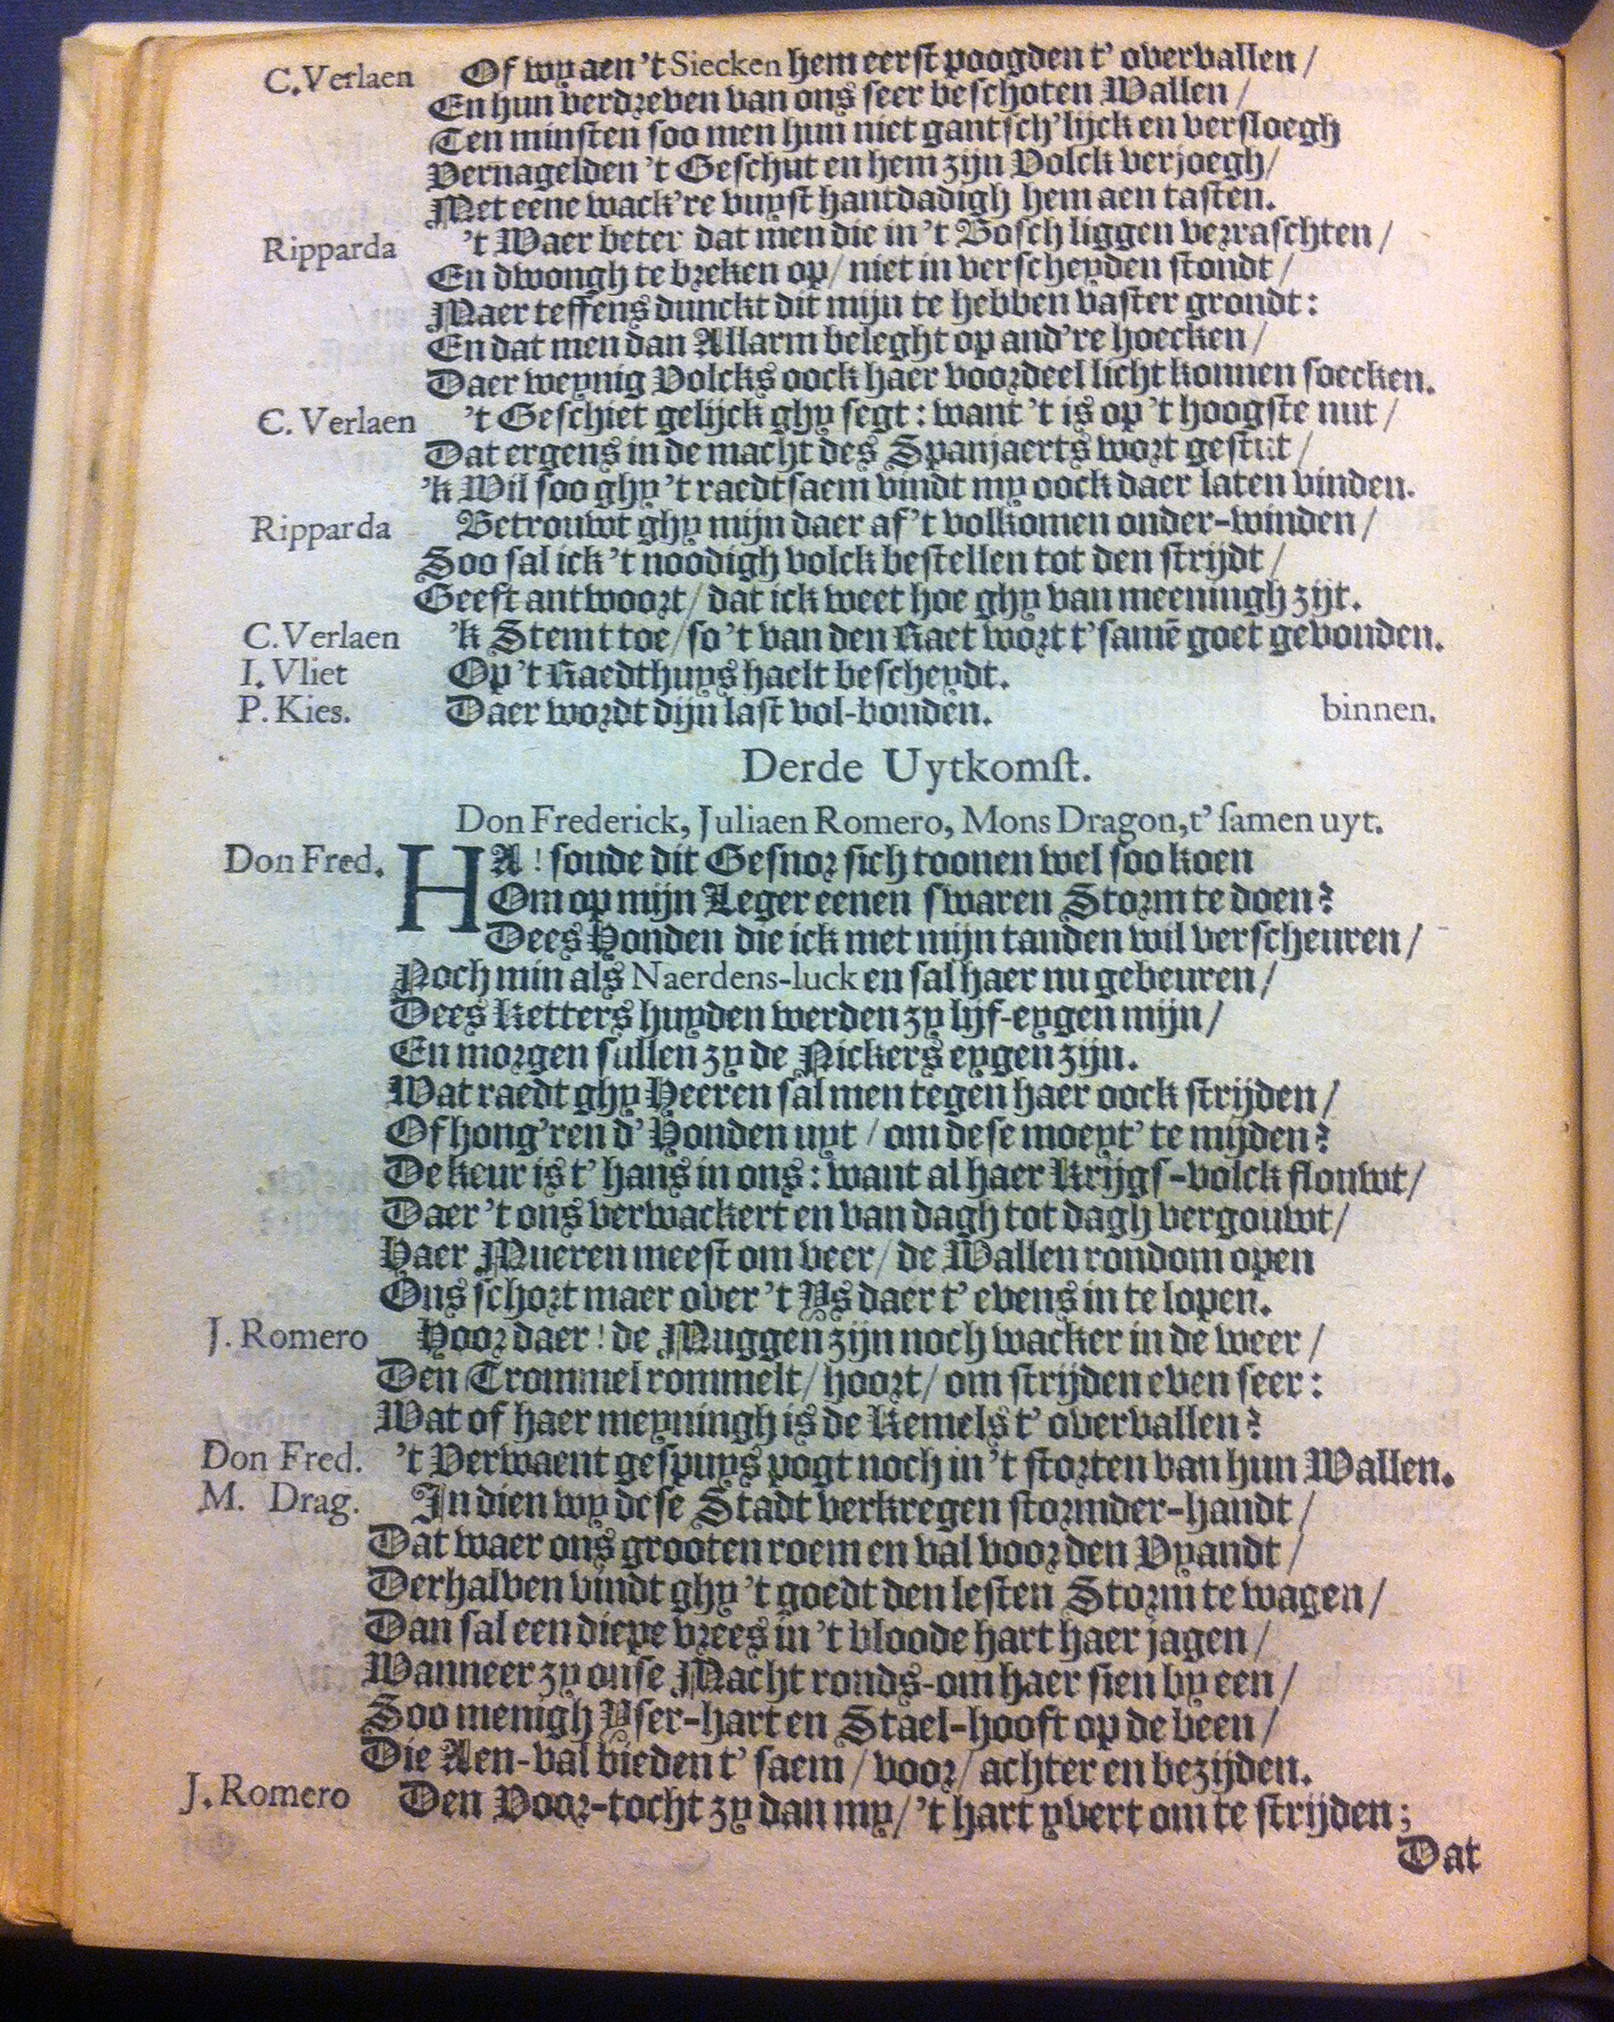 C. Verlaen Of wy aen 't Siecken hem eerst poogden t' overvallen /
En hun verdreven van ons seer beschoten Wallen /
Ten minsten soo men hun niet gantsch'lijck en versloegh
Vernagelden 't Geschut en hem zijn Volck verjoegh /
Met eene wack're vuyst hantdadigh hem aen tasten.
Ripparda 't Waer beter dat men die in 't Bosch liggen verraschten /
En dwongh te breken op / niet in verscheyden stondt /
Maer teffens dunckt dit mijn te hebben vaster grondt :
En dat men dan Allarm beleght op and're hoecken /
Daer weynig Volcks oock haer voordeel licht konnen soecken.
C. Verlaen 't Geschiet gelijck ghy segt : want 't is op 't hoogste nut /
Dat ergens in de macht des Spanjaerts wort gestut /
'k Wil soo ghy 't raedtsaem vindt my oock daer laten vinden.
Ripparda Betrouwt ghy mijn daer af 't volkomen onder-winden /
Soo sal ick 't noodigh volck bestellen tot den strijdt /
Geeft antwoort / dat ick weet hoe ghy van meeningh zijt.
C. Verlaen 'k Stemt toe / so 't van den Raet wort t' samē goet gevonden.
I. Vliet Op 't Raedthuys haelt bescheydt.
P. Kies. Daer wordt dijn last vol-bonden. binnen.
Derde Uytkomst.
Don Frederick, Juliaen Romero, Mons Dragon, t' samen uyt.
Don Fred. HA ! soude dit Gesnor sich toonen wel soo koen
Om op mijn Leger eenen swaren Storm te doen ?
Dees Honden die ick met mijn tanden wil verscheuren /
Noch min als Naerdens-luck en sal haer nu gebeuren /
Dees Ketters huyden werden zy lijf-eygen mijn /
En morgen sullen zy de Nickers eygen zijn.
Wat raedt ghy Heeren sal men tegen haer oock strijden /
Of hong'ren d' Honden uyt / om dese moeyt' te mijden ?
De keur is t' hans in ons : want al haer Krijgs-volck flouwt /
Daer 't ons verwackert en van dagh tot dagh vergouwt /
Haer Mueren meest om veer / de Wallen rondom open
Ons schort maer over 't Ys daer t' evens in te lopen.
J. Romero Hoor daer ! de Muggen zijn noch wacker in de weer /
Den Trommel rommelt / hoort / om strijden even seer :
Wat of haer meyningh is de Kemels t' overvallen ?
Don Fred. 't Verwaent gespuys pogt noch in 't storten van hun Wallen.
M. Drag. Indien wy dese Stadt verkregen stormder-handt /
Dat waer ons grooten roem en val voor den Vyandt /
Derhalven vindt ghy 't goedt den lesten Storm te wagen /
Dan sal een diepe vrees in 't bloode hart haer jagen /
Wanneer zy onse Macht ronds-om haer sien by een /
Soo menigh Yser-hart en Stael-hooft op de been /
Die Aen-val bieden t' saem / voor / achter en bezijden.
J. Romero Den Voor-tocht zy dan my / 't hart yvert om te strijden ;
Dat